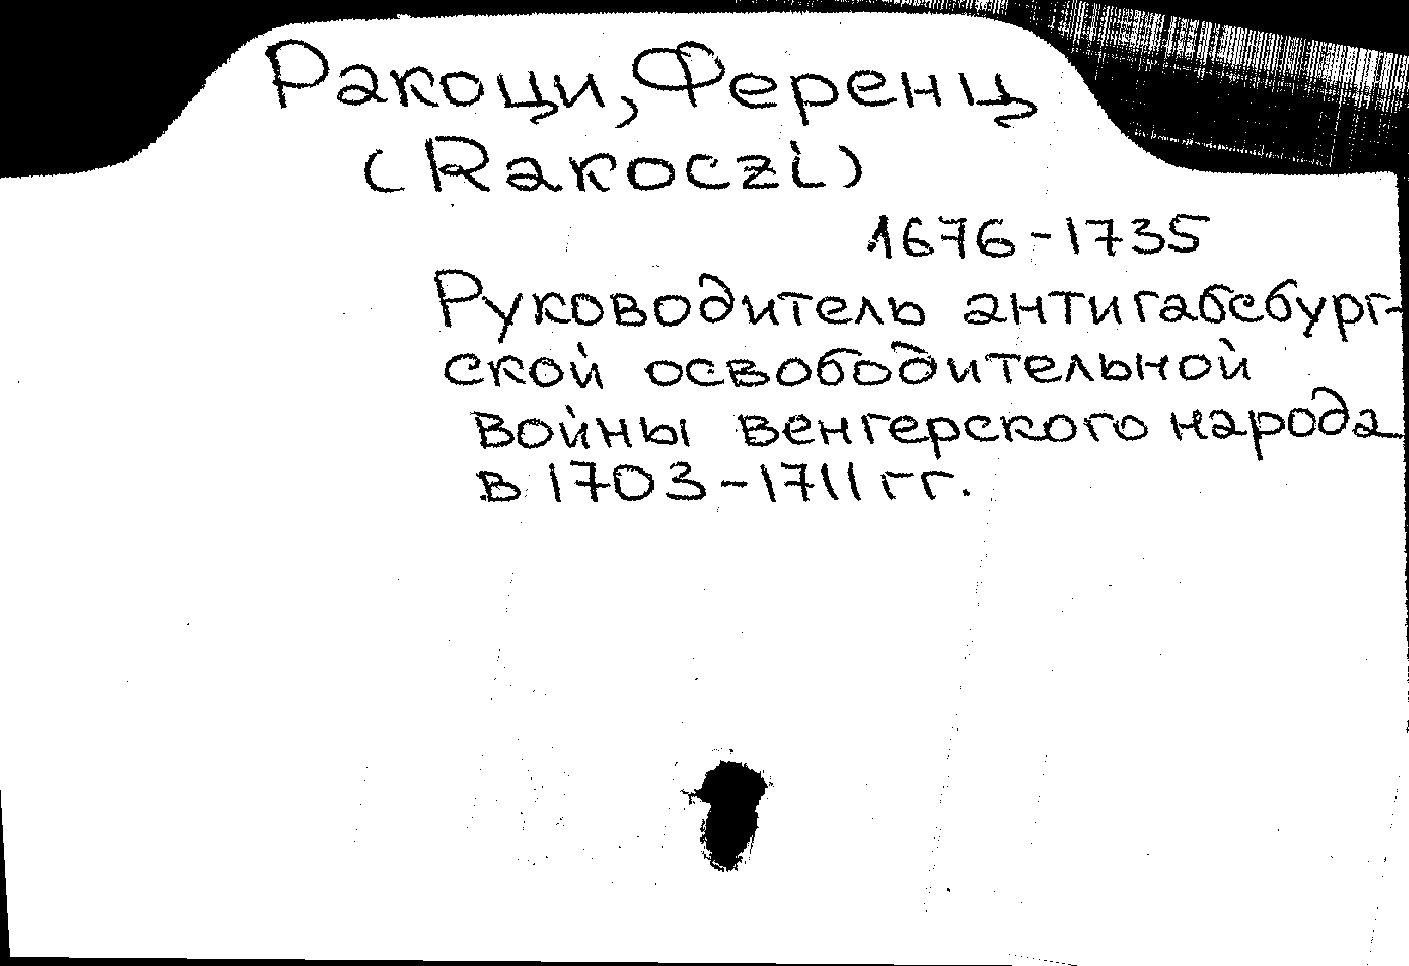 Ракоци, Ференц
(Rakoczi)
1676-1735
Руководитель антигабсбург-
ской освободительной
войны венгерского народа
в 1703-1711 гг.